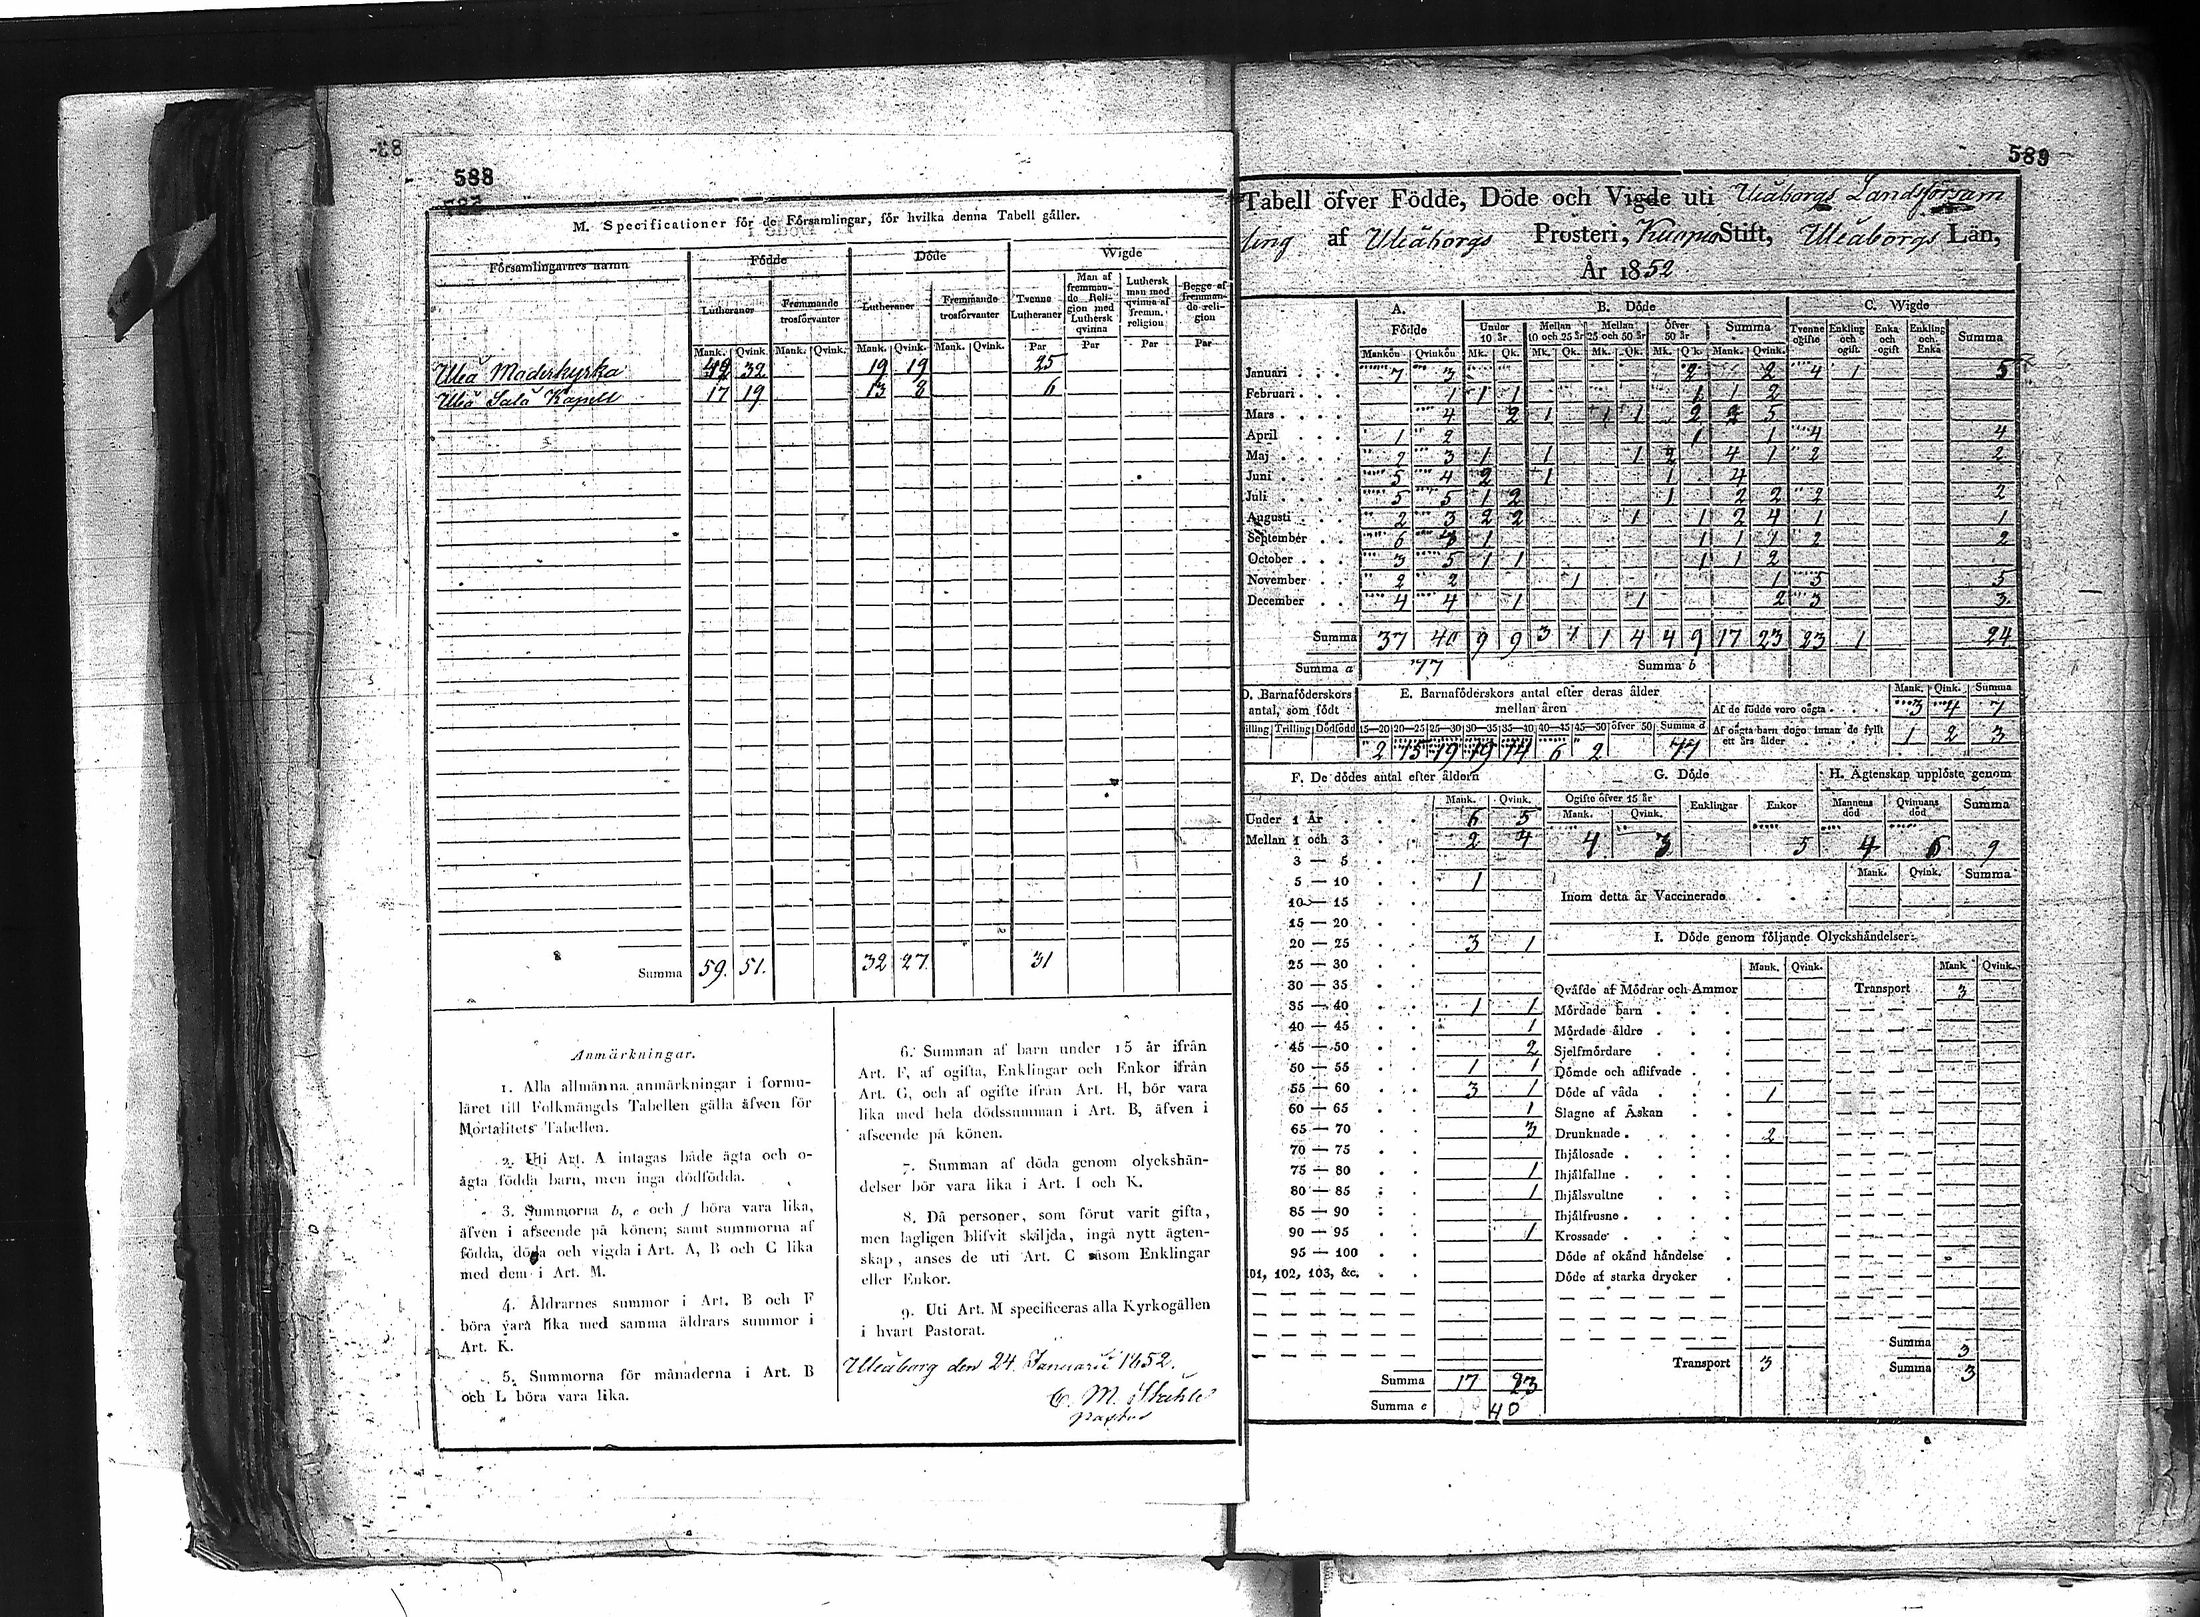 588
M. Specificationer för de Församlingar, för hvilka denna Tabell gäller.
Församlingarnes namn
Födde
Döde
Wigde
Lutheraner
Fremmande trosförvanter
Lutheraner
Fremmande trosförvanter
Tvenne Lutheraner
Man af fremmande Religion med Luthersk qvinna
Luthersk man med qvinna af fremm. religion
Begge af fremmande religion
Mank. Qvink. Mank. Qvink. Mank. Qvink. Mank. Qvink. Par Par Par Par
Uleå Moderkyrka 42 32 19 19 25
Uleå Salo Kapell 17 19 13 8 6
Summa 59. 51. 32 27. 31
Anmärkningar.
1. Alla allmänna anmärkningar i formu-
läret till Folkmängds Tabellen gälla äfven för
Mortalitets Tabellen.
2. Uti Art. A intagas både ägta och o-
ägta födda barn, men inga dödfödda.
3. Summorna b, e och f böra vara lika,
äfven i afseende på könen; samt summorna af
födda, döda och vigda i Art. A, B och C lika
med dem i Art. M.
4. Åldrarnes summor i Art. B och F
böra vara lika med samma åldrars summor i
Art. K.
5. Summorna för månaderna i Art. B
och L böra vara lika.
6. Summan af barn under 15 år ifrån
Art. F, af ogifta, Enklingar och Enkor ifrån
Art. G, och af ogifte ifrån Art. H, bör vara
lika med hela dödssumman i Art. B, äfven i
afseende på könen.
7. Summan af döda genom olyckshän-
delser bör vara lika i Art. I och K.
8. Då personer, som förut varit gifta,
men lagligen blifvit skiljda, ingå nytt ägten-
skap, anses de uti Art. C såsom Enklingar
eller Enkor.
9. Uti Art. M specificeras alla Kyrkogällen
i hvart Pastorat.
Uleåborg den 24. Januarii 1852.
C. M. Ståhle
Pastor
589
Tabell öfver Födde, Döde och Vigde uti Uleåborgs Landsförsam
ling af Uleåborgs Prosteri, Kuopio Stift, Uleåborgs Län,
År 1852
A. Födde
B. Döde
C. Wigde
Under 10 år.
Mellan 10 och 25 år
Mellan 25 och 50 år
öfver 50 år
Summa
Tvenne ogifte
Enkling och ogift
Enka och ogift
Enkling och Enka
Summa
Mankön Qvinkön Mk. Qk. Mk. Qk. Mk. Qk. Mk. Qk. Mank. Qvink.
Januari 7 3 2 2 4 1 5
Februari 1 1 1 1 1 2
Mars 4 2 1 1 1 2 2 5
April 1 2 1 1 4 4
Maj 2 3 1 1 1 2 4 1 2 2
Juni 5 4 2 1 1 4
Juli 5 5 1 2 1 2 2 2 2
Augusti 2 3 2 2 1 1 2 4 1 1
September 6 1 1 1 1 2 2
October 3 5 1 1 1 1 2
November 2 2 1 1 5 5
December 4 4 1 1 2 3 3.
Summa 37 40 9 9 3 1 1 4 4 9 17 23 23 1 24
Summa a 77 Summa b
D. Barnaföderskors antal, som födt
Trilling Dödfödd
E. Barnaföderskors antal efter deras ålder mellan åren
15—20 20—25 25—30 30—35 35—40 40—45 45—50 öfver 50 Summa d
2 15 19 19 14 6 2 77
Mank. Qink. Summa
Af de födde voro oägta 3 4 7
Af oägta barn dogo innan de fyllt ett års ålder 1 2 3
F. De dödes antal efter åldern
Mank. Qvink.
Under 1 År 6 5
Mellan 1 och 3 2 4
3 — 5
5 — 10 1
10 — 15
15 — 20
20 — 25 3 1
25 — 30
30 — 35
35 — 40 1 1
40 — 45 1
45 — 50 2
50 — 55 1 1
55 — 60 3 1
60 — 65 1
65 — 70 3
70 — 75
75 — 80 1
80 — 85 1
85 — 90
90 — 95 1
95 — 100
101, 102, 103, &c.
Summa 17 23
Summa e 40
G. Döde
Ogifte öfver 15 år
Mank. Qvink.
Enklingar
Enkor
4 3 5
H. Ägtenskap upplöste genom
Mannens död
Qvinnans död
Summa
4 9
Mank. Qvink. Summa
Inom detta år Vaccinerade
I. Döde genom följande Olyckshändelser:
Mank. Qvink. Mank. Qvink.
Qväfde af Mödrar och Ammor Transport 3
Mördade barn
Mördade äldre
Sjelfmördare
Dömde och aflifvade
Döde af våda 1
Slagne af Åskan
Drunknade 2
Ihjälosade
Ihjälfallne
Ihjälsvultne
Ihjälfrusne
Krossade
Döde af okänd händelse
Döde af starka drycker
Summa 3
Transport 3 Summa 3